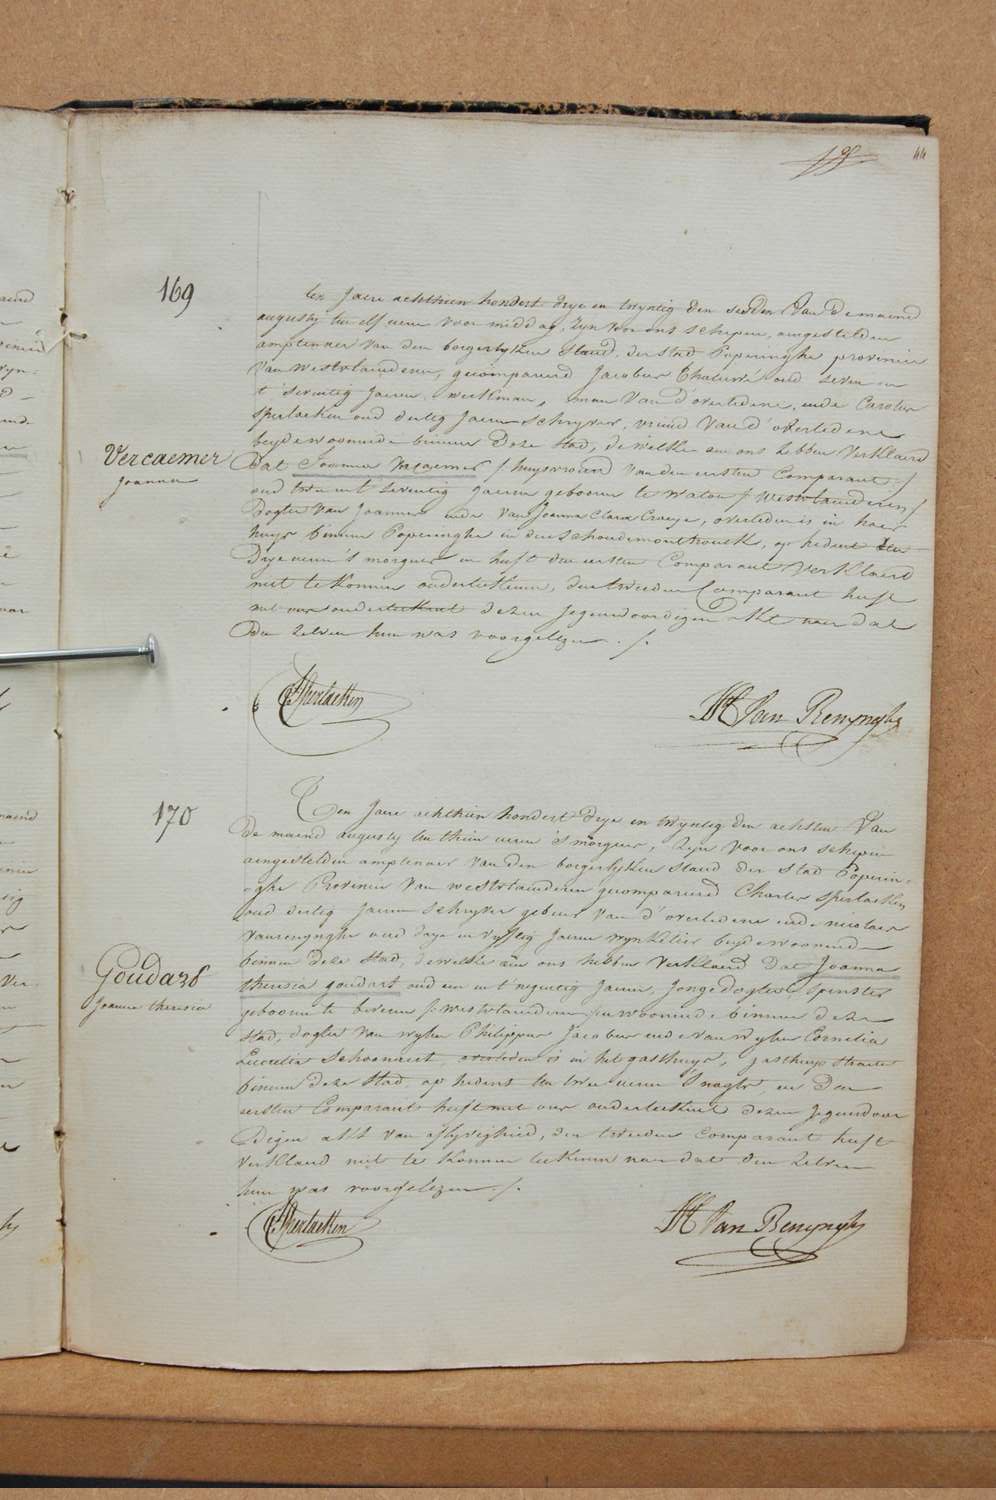 44
169
Ten Jaere achthien hondert drye en twyntig den sesden van de maend
augusty ten elf uren voor middag, zyn voor ons schepen, aengestelden
amptenaer van den borgerlyken stand, der stad Poperinghe provincie
van westvlaenderen, gecompareerd Jacobus oud seven en
t'seventig Jaeren, werkman, man van d'overledene, ende Carolus
Sperlaeken oud dertig Jaeren schryver, vriend van d'overledene
beyde woonende binnen deze stad, de welke aen ons hebben verklaerd
Vercaemer
Joanna
dat Joanna Vercaemer /huysvrouw van den eersten Comparant/
oud twee en t'seventig Jaeren gebooren te watou /westvlaenderen/
dogter van Joannes ende van Joanna Clara Craeye, overleden is in haer
huys binnen Poperinghe in den schoudemonthouck, op heden ten
drye uren 's morgens en heeft den eersten Comparant verklaerd
niet te konnen onderteekenen, den tweeden Comparant heeft
met ons onderteekent dezen Jegenwoordigen Akt naer dat
den zelven hun was voorgelezen ./.
C. Sperlaeken
Van Renynghe
170
Ten Jaere achthien hondert drye en twyntig den achsten van
de maend augusty ten thien uren 's morgens, zyn voor ons schepen
aengestelden amptenaer van den borgerlyken stand der stad Poperin-
-ghe Provincie van westvlaenderen gecompareerd Charles Sperlaeken
oud dertig Jaeren schryver gebuer van d'overledene ende nicolaes
vanrenynghe oud drye en vyftig Jaeren wynkelier beyde woonende
binnen deze stad, de welke aen ons hebben verklaerd dat Joanna
Goudars
Joanna theresia
theresia goudars oud een en t'negentig Jaeren, Jonge dogter spinster
gebooren te beveren /westvlaenderen/ en woonende binnen deze
stad, dogter van wylen Philippus Jacobus ende van wylen Cornelia
Lucretia Schoonaert, overleden is in het gasthuys, gasthuys straete
binnen deze stad, op heden ten twee uren 's nagts, en den
eersten Comparant heeft met ons onderteekent dezen Jegenwoor
digen akt van aflyvigheid, den tweeden Comparant heeft
verklaerd niet te konnen teekenen naer dat den zelven
hun was voorgelezen ./.
C. Sperlaeken
Van Renynghe